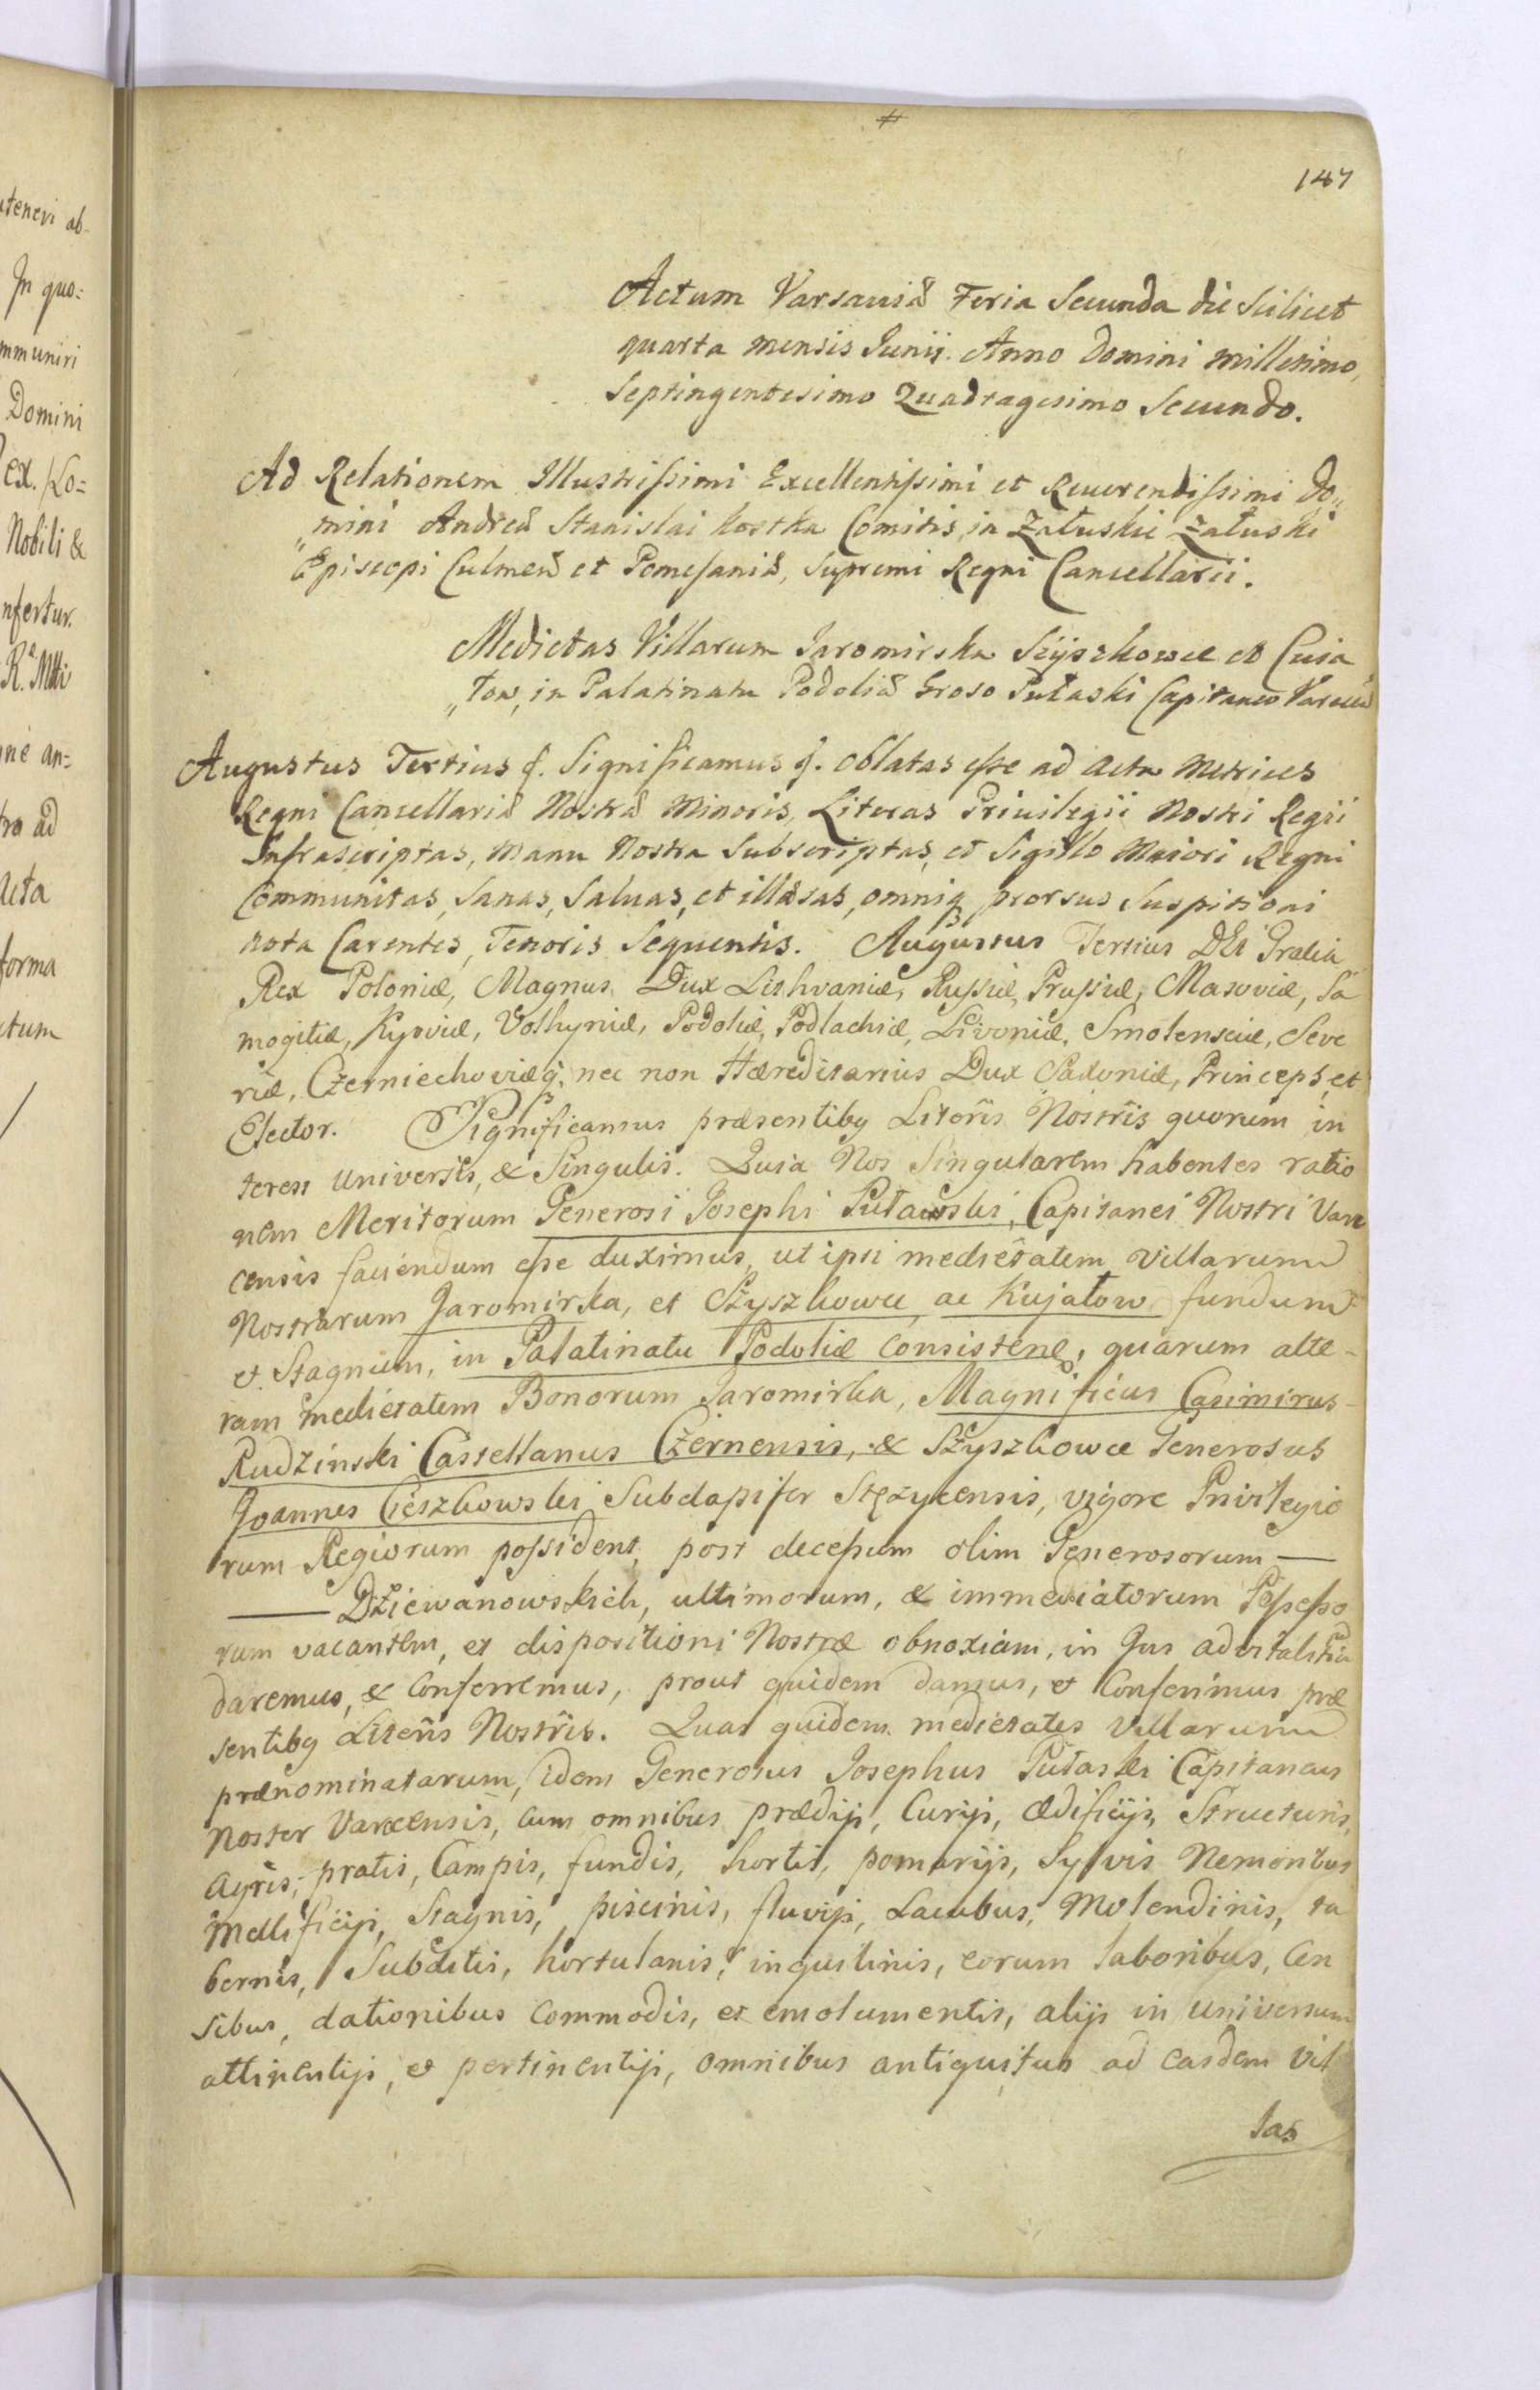 #
147
Actum Varsaviæ Feria Secunda die Scilicet
quarta mensis Junii. Anno Domini millesimo,
Septingentesimo Quadragesimo Secundo.
Ad Relationem Illustrissimi Excellentissimi et Reverendissimi Do„
„mini Andreæ Stanislai Kostka Comitis in Załuskie Załuski
Episcopi Culmen et Pomesaniæ, Supremi Regni Cancellarii.
Medietas Villarum Jaromirska Szyszkowce et Cuia
„tow, in Palatinatu Podoliæ Groso Pułaski Capitaneo Varecen
Augustus Tertius &. Significamus &. Oblatas esse ad Acta Metrices
Regni Cancellariæ Nostræ Minoris, Literas Privilegii Nostri Regii
Infrascriptas, manu Nostra Subscriptas, et Sigillo Maiori Regni
Communitas, Sanas, Salvas, et illæsas, omniq prorsus Suspitioni
nota Carentes, Tenoris Sequentis. Augustus Tertius DEI Gratia
Rex Poloniæ, Magnus Dux Lithvaniæ, Russiæ, Prussiæ, Masoviæ, Sa
mogitiæ, Kyoviæ, Volhyniæ, Podoliæ, Podlachiæ, Livoniæ, Smolensciæ, Seve
riæ, Czerniechoviæq; nec non Hæreditarius Dux Saxoniæ, Princeps, et
Elector. Significamus præsentibg Literis Nostris quorum in
terest universis, & Singulis. Quia Nos Singularem habentes ratio
nem Meritorum Generosi Josephi Puławski, Capitanei Nostri Vare
censis faciendum esse duximus, ut ipsi medietatem Villarum
Nostrarum Jaromirka, et Szyszkowce, ac Kujatow fundum
et Stagnum, in Palatinatu Podoliæ Consisten, quarum alte-
ram medietatem Bonorum Jaromirka, Magnificus Casimirus-
Rudzinski Castellanus Czernensis, & Szyszkowce Generosus
Joannes Cieszkowski Subdapifer Stężycensis, vigore Privilegio
rum Regiorum possident, post decessum olim Generosorum —
— Dziewanowskich, ultimorum, & immediatorum Possesso
rum vacantem, et dispositioni Nostræ obnoxiam, in Jus advitalitiũ
daremus, & Conferremus, prout quidem damus, et Conferimus præ
sentibg Literis Nostris. Quas quidem medietates Villarum
prænominatarum, idem Generosus Josephus Pułaski Capitaneus
Noster Varecensis, cum omnibus prædijs, Curijs, Ædificijs, Structuris,
Agris, pratis, Campis, fundis, hortis, pomarijs, Sylvis Nemoribus
Mellificijs, Stagnis, piscinis, fluvijs, Lacubus, Molendinis, ta
bernis, Subditis, hortulanis, inquilinis, eorum laboribus, Cen
sibus, dationibus Commodis, et emolumentis, alijs in universum
attinentijs, et pertinentijs, omnibus antiquitus ad easdem Vil
las